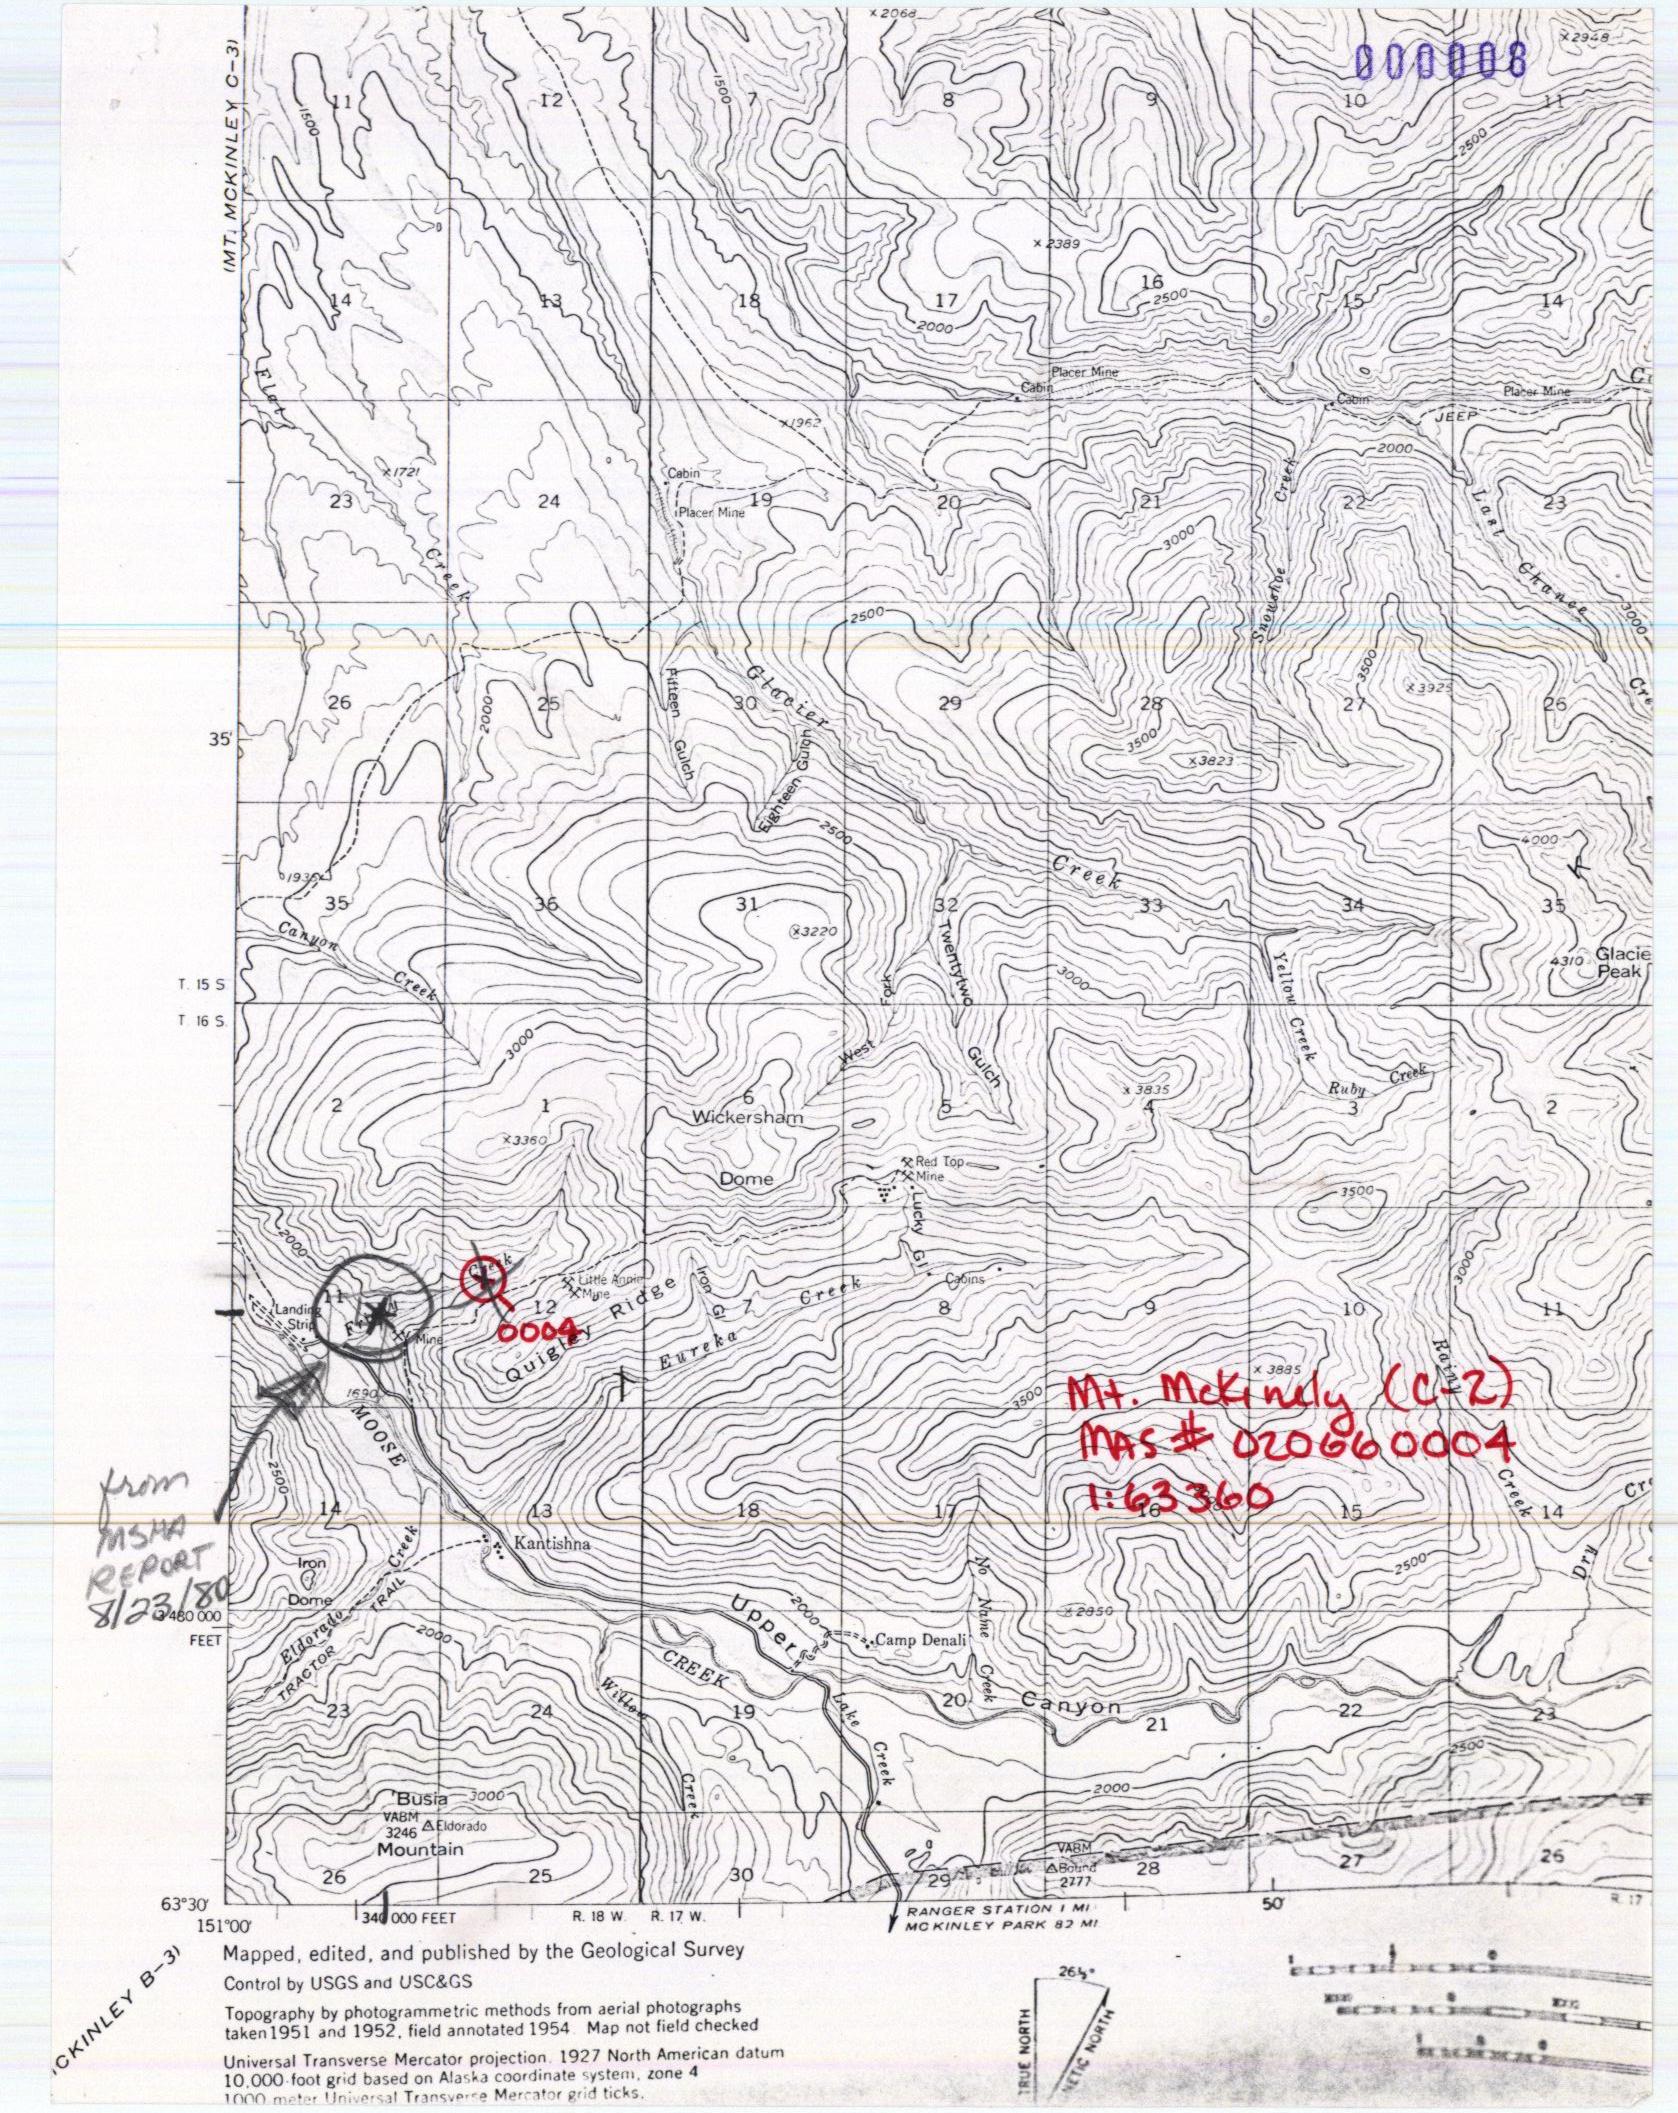 000008
(MT. MCKINLEY C-3)
×2068
×2948
11
12
7
8
9
10
11
1500
1500
2500
×2389
14
13
18
17
16
15
14
2500
2000
Flat
Placer Mine
Cabin
Cabin
Placer Mine
JEEP
×1962
×1721
2000
Cabin
Placer Mine
23
24
19
20
21
22
23
Creek
Creek
Snowshoe
Last
Chance
3000
3000
2500
Fifteen
Gulch
Glacier
26
25
30
29
28
27
26
2000
3500
×3925
35'
Eighteen Gulch
3500
×3823
2500
4000
1935
Creek
35
36
31
32
33
34
35
×3220
Canyon
Creek
Twentytwo
Gulch
4310
Peak
T. 15 S
T. 16 S.
3000
3000
West
Fork
Yellow
Creek
Ruby
Creek
×3835
2
1
6
5
4
3
2
Wickersham
Dome
×3360
Red Top
Mine
3500
2000
Lucky
Gl
Creek
Little Annie
Mine
Iron
Gl
Creek
Cabins
3000
Landing
Strip
11
12
7
8
9
10
11
Mine
0004
Ridge
Eureka
Rainy
×3885
1690
MOOSE
3500
Mt. McKinely (C-2)
MAS # 020660004
1:63360
from
MSHA
REPORT
8/23/80
2500
14
13
18
17
16
15
14
Creek
Kantishna
Iron
Dome
Creek
TRAIL
Eldorado
TRACTOR
2500
Dry
3 480 000
FEET
2000
Upper
2000
No
Name
Creek
×2850
Camp Denali
CREEK
Willow
Creek
Lake
Creek
Canyon
23
24
19
20
21
22
23
2500
2000
Busia
3000
VABM
3246
Eldorado
Mountain
VABM
Bound
2777
26
25
30
29
28
27
26
63°30'
151°00'
340 000 FEET
R. 18 W.
R. 17 W.
RANGER STATION 1 MI
MCKINLEY PARK 82 MI
50'
R. 17
CKINLEY B-3)
Mapped, edited, and published by the Geological Survey
Control by USGS and USC&GS
Topography by photogrammetric methods from aerial photographs
taken 1951 and 1952, field annotated 1954. Map not field checked
Universal Transverse Mercator projection. 1927 North American datum
10,000-foot grid based on Alaska coordinate system, zone 4
1000 meter Universal Transverse Mercator grid ticks,
26½°
TRUE NORTH
NETIC NORTH